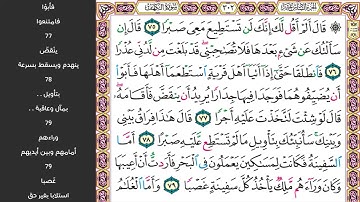 فأبوا
فامتنعوا
77
ينقض
ينهدم ويسقط بسرعة
78
بتأويل ..
بمآل وعاقبة ..
79
وراءهم
أمامهم وبين أيديهم
79
غصبا
استلابا بغير حق
سورة الكهف
٣٠٢
قَالَ أَلَمْ أَقُل لَّكَ إِنَّكَ لَن تَسْتَطِيعَ مَعِيَ صَبْرًا ٧٥ قَالَ إِن
سَأَلْتُكَ عَن شَيْءٍ بَعْدَهَا فَلَا تُصَاحِبْنِي قَدْ بَلَغْتَ مِن لَّدُنِّي عُذْرًا
٧٦ فَانطَلَقَا حَتَّىٰ إِذَا أَتَيَا أَهْلَ قَرْيَةٍ اسْتَطْعَمَا أَهْلَهَا فَأَبَوْا
أَن يُضَيِّفُوهُمَا فَوَجَدَا فِيهَا جِدَارًا يُرِيدُ أَن يَنقَضَّ فَأَقَامَهُ
قَالَ لَوْ شِئْتَ لَتَّخَذْتَ عَلَيْهِ أَجْرًا ٧٧ قَالَ هَٰذَا فِرَاقُ بَيْنِي
وَبَيْنِكَ سَأُنَبِّئُكَ بِتَأْوِيلِ مَا لَمْ تَسْتَطِع عَّلَيْهِ صَبْرًا ٧٨ أَمَّا
السَّفِينَةُ فَكَانَتْ لِمَسَاكِينَ يَعْمَلُونَ فِي الْبَحْرِ فَأَرَدتُّ أَنْ أَعِيبَهَا
وَكَانَ وَرَاءَهُم مَّلِكٌ يَأْخُذُ كُلَّ سَفِينَةٍ غَصْبًا ٧٩ وَأَمَّا الْغُلَامُ